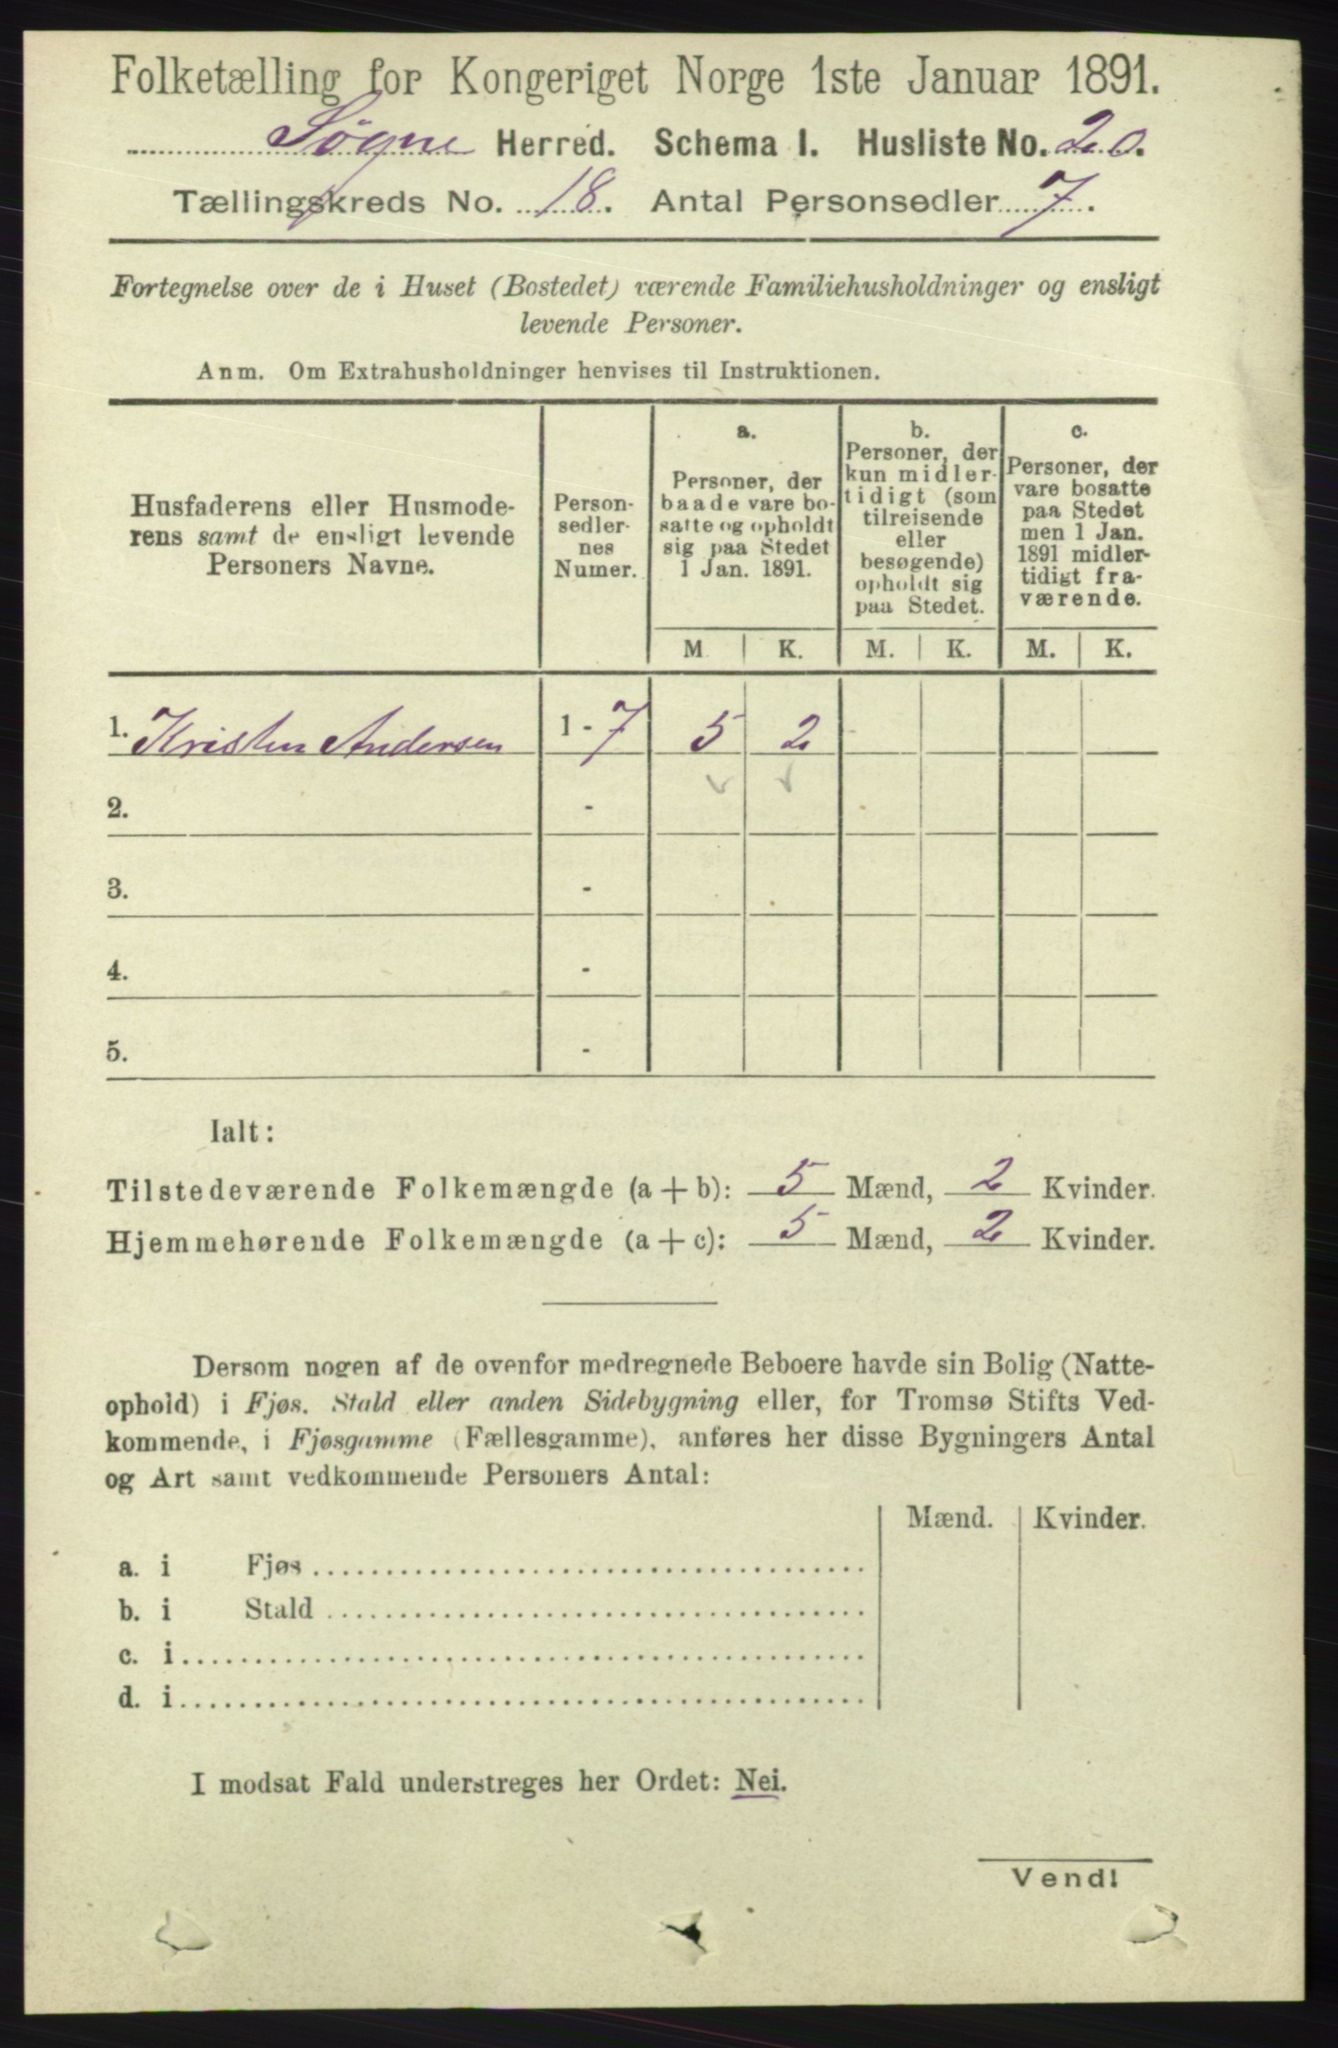 Folketælling for Kongeriget Norge 1ste Januar 1891.
Søgne Herred. Schema I. Husliste No. 20.
Tællingskreds No. 18. Antal Personsedler 7.
Fortegnelse over de i Huset (Bostedet) værende Familiehusholdninger og ensligt
levende Personer.
Anm. Om Extrahusholdninger henvises til Instruktionen.
Husfaderens eller Husmode-
rens samt de ensligt levende
Personers Navne.
Person-
sedler-
nes
Numer.
a.
Personer, der
baade vare bo-
satte og opholdt
sig paa Stedet
1 Jan. 1891.
b.
Personer, der
kun midler-
tidigt (som
tilreisende
eller
besøgende)
opholdt sig
paa Stedet.
c.
Personer, der
vare bosatte
paa Stedet
men 1 Jan.
1891 midler-
tidigt fra-
værende.
M. K. M. K. M. K.
1. Kristen Andersen 1 - 7 5 2
2. -
3. -
4. -
5. -
Ialt:
Tilstedeværende Folkemængde (a + b): 5 Mænd, 2 Kvinder.
Hjemmehørende Folkemængde (a + c): 5 Mænd, 2 Kvinder.
Dersom nogen af de ovenfor medregnede Beboere havde sin Bolig (Natte-
ophold) i Fjøs, Stald eller anden Sidebygning eller, for Tromsø Stifts Ved-
kommende, i Fjøsgamme (Fællesgamme), anføres her disse Bygningers Antal
og Art samt vedkommende Personers Antal:
Mænd. Kvinder.
a. i Fjøs
b. i Stald
c. i
d. i
I modsat Fald understreges her Ordet: Nei.
Vend!